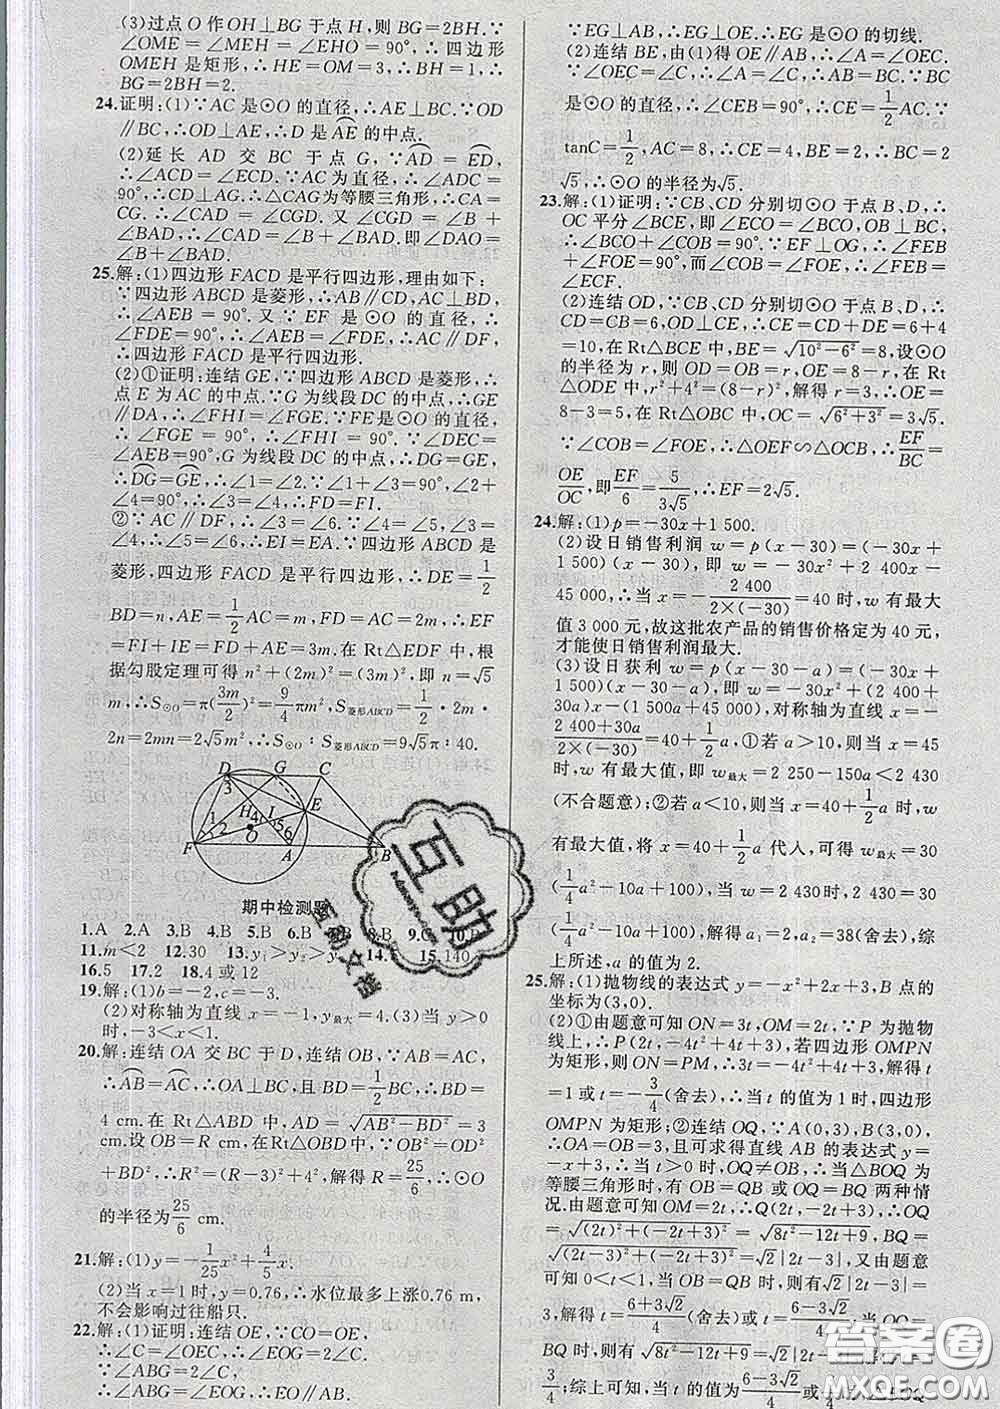 (3)过点 O 作 OH⊥BG 于点 H,则 BG=2BH.∵
∠OME=∠MEH=∠EHO=90°,∴四边形
OMEH 是矩形,∴HE=OM=3,∴BH=1,∴
BG=2BH=2.
24.证明:(1)∵AC 是⊙O 的直径,∴AE⊥BC.∵OD
∥BC,∴OD⊥AE,∴D 是AE的中点.
(2)延长 AD 交 BC 于点 G,∵AD=ED,
∴∠ACD=∠ECD.∵AC 为直径,∴∠ADC=
90°,∴CD⊥AG.∴△CAG为等腰三角形,∴CA=
CG.∴∠CAD=∠CGD.又∠CGD=∠B+
∠BAD,∴∠CAD=∠B+∠BAD.即∠DAO=
∠B+∠BAD.
25.解:(1)四边形 FACD 是平行四边形,理由如下:
∵四边形 ABCD 是菱形,∴AB∥CD,AC⊥BD,
∴∠AEB=90°.又∵EF 是⊙O 的直径,∴
∠FDE=90°,∴∠AEB=∠FDE,∴AC∥DF,
∴四边形 FACD 是平行四边形.
(2)①证明:连结 GE,∵四边形 ABCD 是菱形,∴
点 E 为 AC 的中点.∵G 为线段 DC 的中点,∴GE
∥DA,∴∠FHI=∠FGE.∵FE是⊙O 的直径,
∴∠FGE=90°,∴∠FHI=90°.∵∠DEC=
∠AEB=90°,G 为线段 DC 的中点,∴DG=GE,
∴DG=GE,∴∠1=∠2.∵∠1+∠3=90°,∠2+
∠4=90°,∴∠3=∠4,∴FD=FI.
②∵AC∥DF,∴∠3=∠6.∵∠4=∠5,∠3=
∠4,∴∠5=∠6,∴EI=EA.∵四边形 ABCD 是
菱形,四边形 FACD 是平行四边形,∴DE=1/2
BD=n,AE=1/2AC=m,FD=AC=2m,∴EF
=FI+IE=FD+AE=3m.在 Rt△EDF 中,根
据勾股定理可得 n²+(2m)²=(3m)²,即 n=√5
m,∴S⊙O=π(3m/2)²=9/4πm²,S菱形ABCD=1/2·2m·
2n=2mn=2√5m²,∴S⊙O∶S菱形ABCD=9√5π∶40.
D G C 3 E H 4 I 1 2 O 5 6 F A B
期中检测题
1.A 2.A 3.B 4.B 5.B 6.B 8.B
11.m<2 12.30 15.140
16.5 17.2 18.4 或 12
19.解:(1)b=-2,c=-3.
(2)对称轴为直线 x=-1,y最大=4.(3)当 y>0
时,-3<x<1.
20.解:连结 OA 交 BC 于 D,连结 OB,∵AB=AC,
∴AB=AC,∴OA⊥BC,且 BD=1/2BC,∴BD=
4 cm.在 Rt△ABD 中,AD=√(AB²-BD²)=3
cm.设 OB=R cm,在Rt△OBD 中,∵OB²=OD²
+BD²,∴R²=(R-3)²+4²,解得 R=25/6,∴⊙O
的半径为25/6 cm.
21.解:(1)y=-1/25x²+4/5x.
(2)当 x=1 时,y=0.76,∴水位最多上涨0.76 m,
不会影响过往船只.
22.解:(1)证明:连结 OE,∵CO=OE,
∴∠C=∠OEC,∴∠EOG=2∠C.
∵∠ABG=2∠C,
∴∠ABG=∠EOG,∴OE∥AB.
∵EG⊥AB,∴EG⊥OE.∴EG 是⊙O 的切线.
(2)连结 BE,由(1)得 OE∥AB,∴∠A=∠OEC.
∵∠OEC=∠C,∴∠A=∠C,∴AB=BC.∵BC
是⊙O 的直径,∴∠CEB=90°,∴CE=1/2AC.∵
tanC=1/2,AC=8,∴CE=4,BE=2,∴BC=2
√5,∴⊙O 的半径为√5.
23.解:(1)证明:∵CB、CD 分别切⊙O 于点 B、D,∴
OC 平分∠BCE,即∠ECO=∠BCO,OB⊥BC,
∴∠BCO+∠COB=90°.∵EF⊥OG,∴∠FEB
+∠FOE=90°,而∠COB=∠FOE,∴∠FEB=
∠ECF.
(2)连结 OD,∵CB、CD 分别切⊙O 于点 B、D,∴
CD=CB=6,OD⊥CE,∴CE=CD+DE=6+4
=10,在 Rt△BCE 中,BE=√(10²-6²)=8,设⊙O
的半径为 r,则 OD=OB=r,OE=8-r,在 Rt
△ODE 中,r²+4²=(8-r)²,解得 r=3,∴OE=
8-3=5,在 Rt△OBC 中,OC=√(6²+3²)=3√5.
∵∠COB=∠FOE,∴△OEF∽△OCB,∴EF/BC=
OE/OC,即EF/6=5/(3√5),∴EF=2√5.
24.解:(1)p=-30x+1 500.
(2)设日销售利润 w=p(x-30)=(-30x+
1 500)(x-30),即 w=-30x²+2 400x-
45 000,∴当 x=-2 400/(2×(-30))=40 时,w 有最大
值 3 000 元,故这批农产品的销售价格定为 40 元,
才能使日销售利润最大.
(3)设日获利 w=p(x-30-a)=(-30x+
1 500)(x-30-a),即 w=-30x²+(2 400+
30a)x-(1 500a+45 000),对称轴为直线 x=
-(2 400+30a)/(2×(-30))=40+1/2a,①若 a>10,则当 x=45
时,w 有最大值,即 w最大=2 250-150a<2 430
(不合题意);②若 a<10,则当 x=40+1/2a 时,w
有最大值,将 x=40+1/2a 代人,可得 w最大=30
(1/4a²-10a+100),当 w=2 430 时,2 430=30
(1/4a²-10a+100),解得 a₁=2,a₂=38(舍去),综
上所述,a 的值为 2.
25.解:(1)抛物线的表达式 y=-x²+2x+3,B 点的
坐标为(3,0).
(2)①由题意可知 ON=3t,OM=2t,∵P 为抛物
线上,∴P(2t,-4t²+4t+3),若四边形 OMPN
为矩形,则 ON=PM,∴3t=-4t²+4t+3,解得 t
=1 或 t=-3/4(舍去),∴当 t 的值为 1 时,四边形
OMPN 为矩形;②连结 OQ,∵A(0,3),B(3,0),
∴OA=OB=3,且可求得直线 AB 的表达式 y=
-x+3,∴当 t>0 时,OQ≠OB,∴当△BOQ 为
等腰三角形时,有 OB=QB 或 OQ=BQ 两种情
况.由题意可知 OM=2t,∴Q(2t,-2t+3),∴OQ
=√((2t)²+(-2t+3)²)=√(8t²-12t+9),BQ=
√((2t-3)²+(-2t+3)²)=√2|2t-3|,又由题意
可知 0<t<1,当 OB=QB 时,则有√2|2t-3|=
3,解得 t=(6+3√2)/4(舍去)或 t=(6-3√2)/4,当 OQ=
BQ 时,则有√(8t²-12t+9)=√2|2t-3|,解得 t=
3/4;综上可知,当 t 的值为(6-3√2)/4或
互助
互动文档
答案圈
MXQE.COM